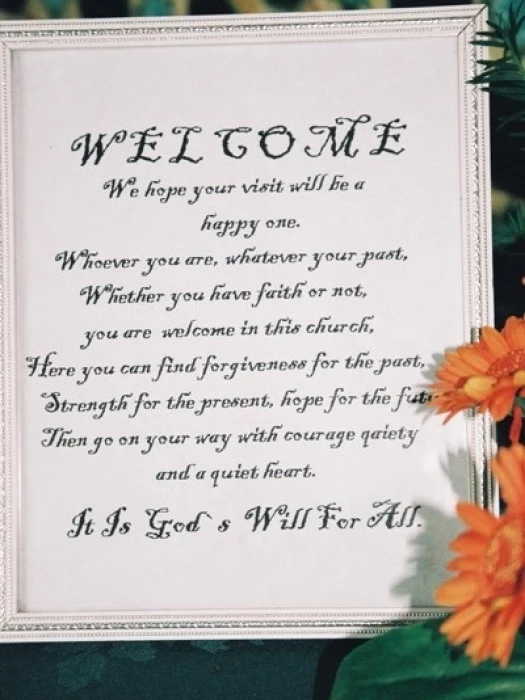 WELCOME
We hope your visit will be a
happy one.
Whoever you are, whatever your past,
Whether you have faith or not,
you are welcome in this church,
Here you can find forgiveness for the past,
Strength for the present, hope for the
Then go on your way with courage qaiety
and a quiet heart.
It Is God`s Will For All.